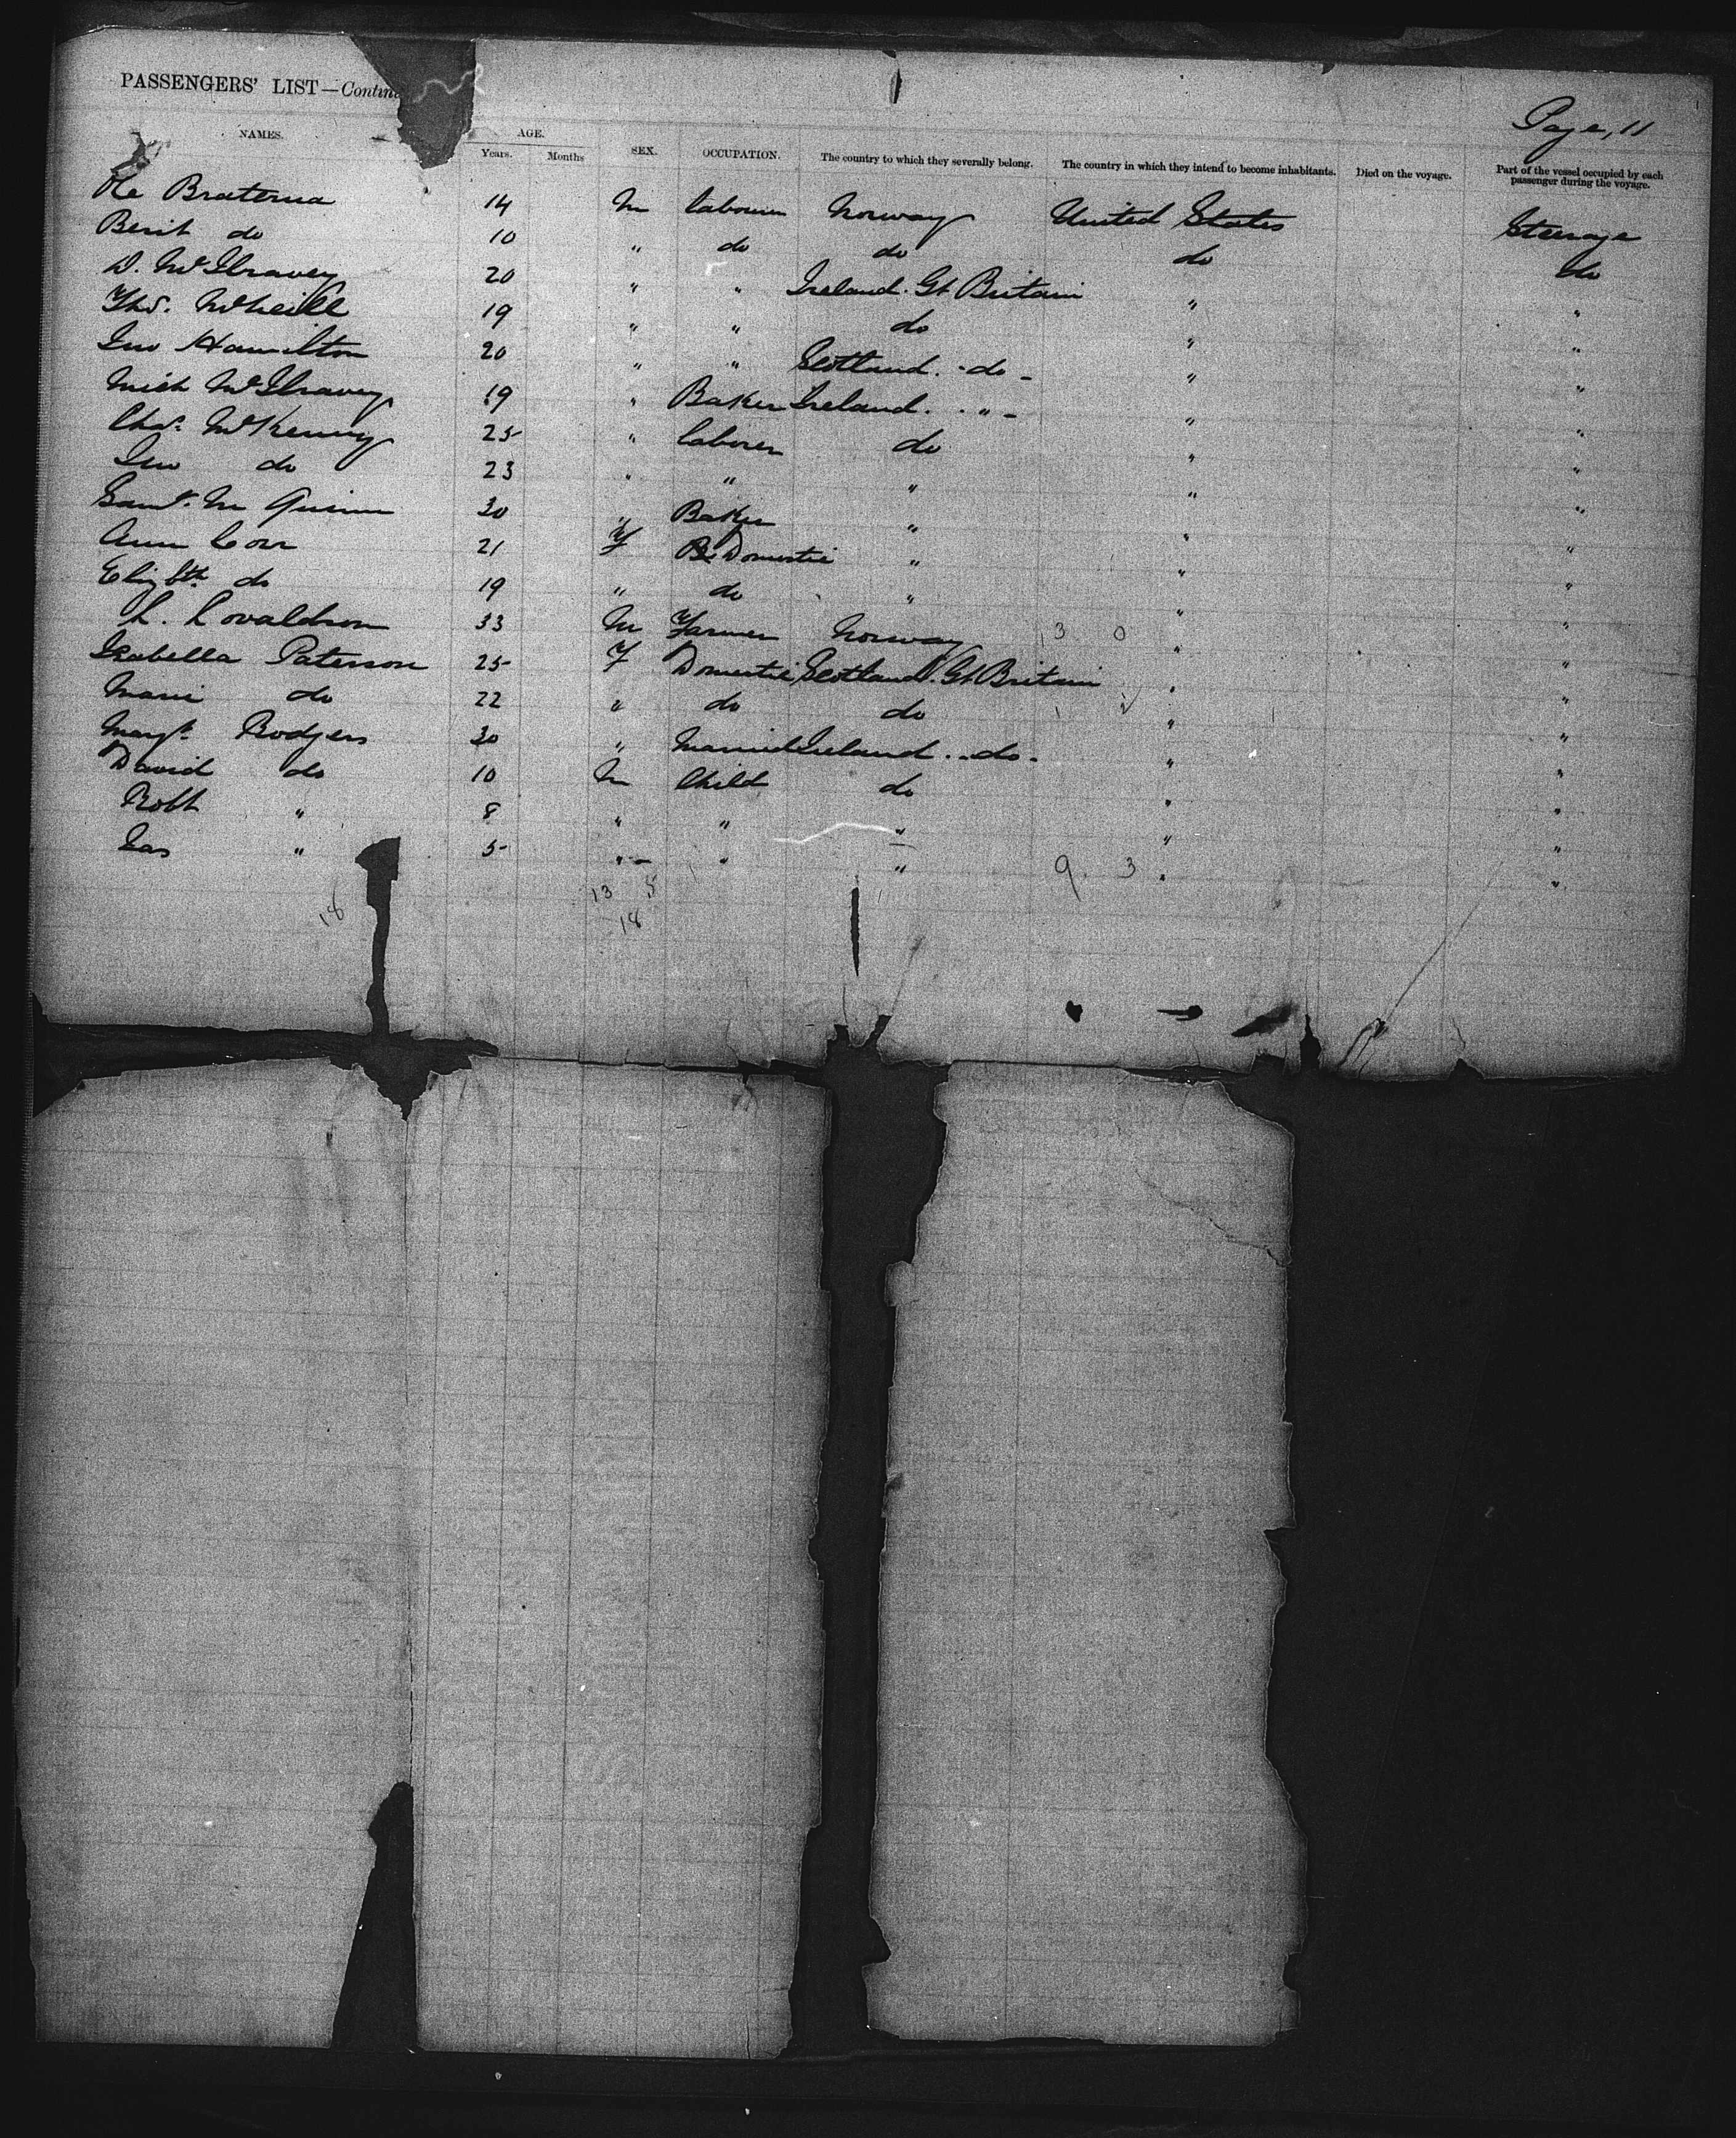 PASSENGERS' LIST—Contin
Page, 11
NAMES. AGE. Years. Months SEX. OCCUPATION. The country to which they severally belong. The country in which they intend to become inhabitants. Died on the voyage. Part of the vessel occupied by each passenger during the voyage.
Ole Braterud 14 M labourer Norway United States Steerage
Berit do 10 " do do do do
D. McIlravey 20 " " Ireland. Gt Britain " "
Thos. McNeill 19 " " do " "
Jno Hamilton 20 " " Scotland. - do - " "
Mich McIlravey 19 " Baker Ireland. . " - " "
Chas. McKenny 25 " laborer do " "
Jno do 23 " " " " "
Saml. M Quinn 30 " Baker " " "
Ann Corr 21 F Domestic " " "
Elizbth do 19 " do " " "
33 M Farmer Norway 3 0 " "
Isabella Paterson 25 F Domestic Scotland. Gt Britain " "
do 22 " do do " "
Margt. Rodgers 30 " Married Ireland . . do . " "
David do 10 M Child do " "
Robt " 8 " " " " "
Jas " 5 " " " 9. 3 " "
18 13 5
18